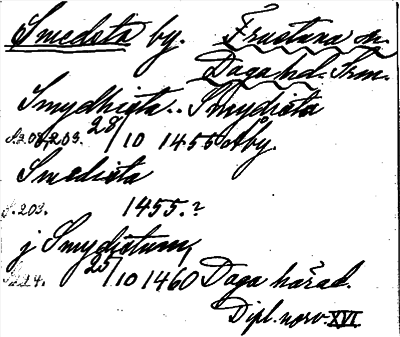 Smedsta by. Frustuna sn.
Daga hd. Srm.
Smydhista.. Smydista
S. 208, 209. 28/10 1455 otby.
Smedista
S. 209. 1455.?
j Smydistum,
S. 224. 25/10 1460 Daga härad.
Dipl. norv. XVI.